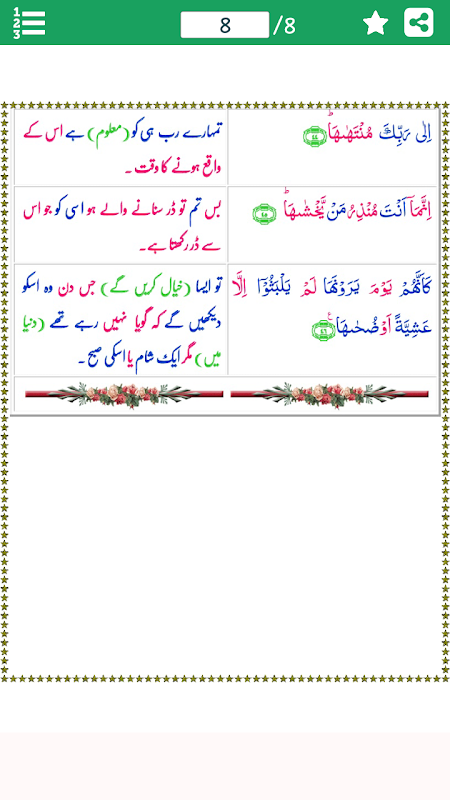 1
2
3
8 /8
اِلٰى رَبِّكَ مُنْتَهٰىهَاؕ ۴۴
تمہارے رب ہی کو (معلوم) ہے اس کے
واقع ہونے کا وقت ۔
اِنَّمَاۤ اَنْتَ مُنْذِرُ مَنْ يَّخْشٰىهَاؕ ۴۵
بس تم تو ڈر سنانے والے ہو اسی کو جو اس
سے ڈر رکھتا ہے۔
كَاَنَّهُمْ يَوْمَ يَرَوْنَهَا لَمْ يَلْبَثُوْۤا اِلَّا
عَشِيَّةً اَوْ ضُحٰىهَا ۴۶ ع
تو ایسا (خیال کریں گے) جس دن وہ اسکو
دیکھیں گے کہ گویا نہیں رہے تھے (دنیا
میں) مگر ایک شام یا اسکی صبح ۔